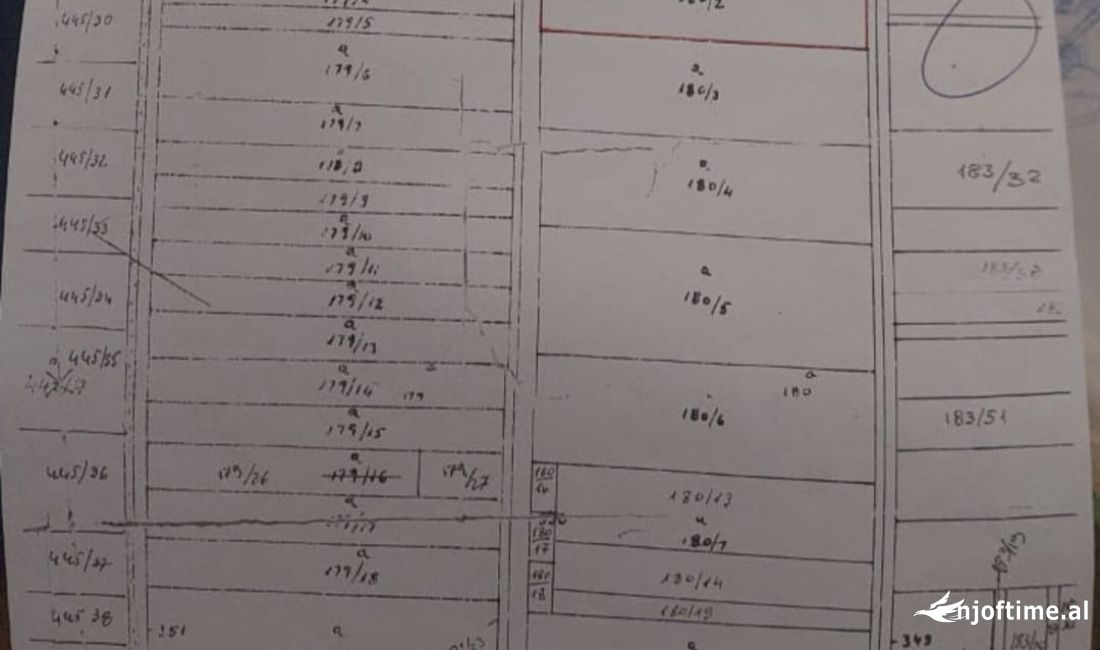 445/30
445/31
445/32
445/33
445/34
445/35
445/36
445/37
445 38
179/5
a
179/6
a
179/7
179/9
a
179/10
a
179/11
a
179/12
a
179/13
a
179/14
179
a
179/15
a
179/26
179/16
179/27
a
a
179/18
351
a
180/2
a
180/3
a
180/4
a
180/5
a
180
180/6
180/13
a
180/7
180
17
180/14
180
18
180/19
a
183/32
183/51
183/19
349
njoftime.al